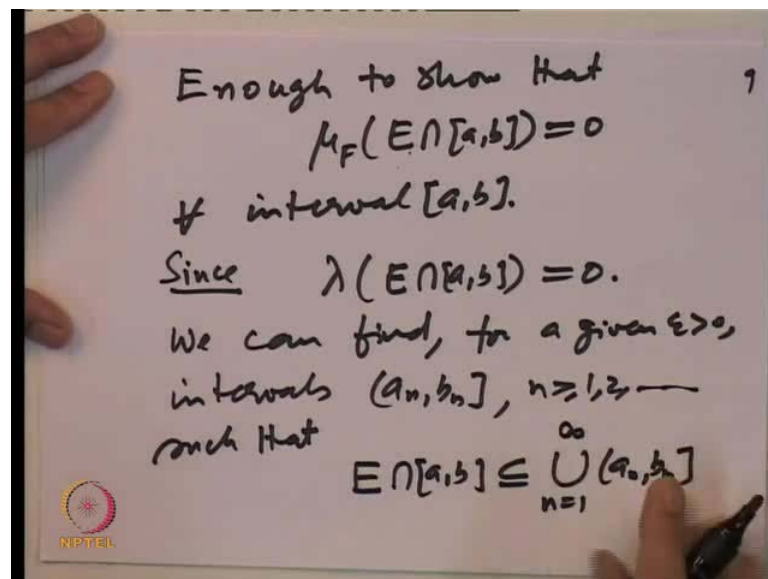 Enough to show that
9
μ_F(E∩[a,b])=0
∀ interval [a,b].
Since λ(E∩[a,b])=0.
We can find, for a given ε>0,
intervals (a_n, b_n], n≥1,2,—
such that
E∩[a,b] ⊆ ⋃_{n=1}^{∞} (a_n, b_n]
NPTEL